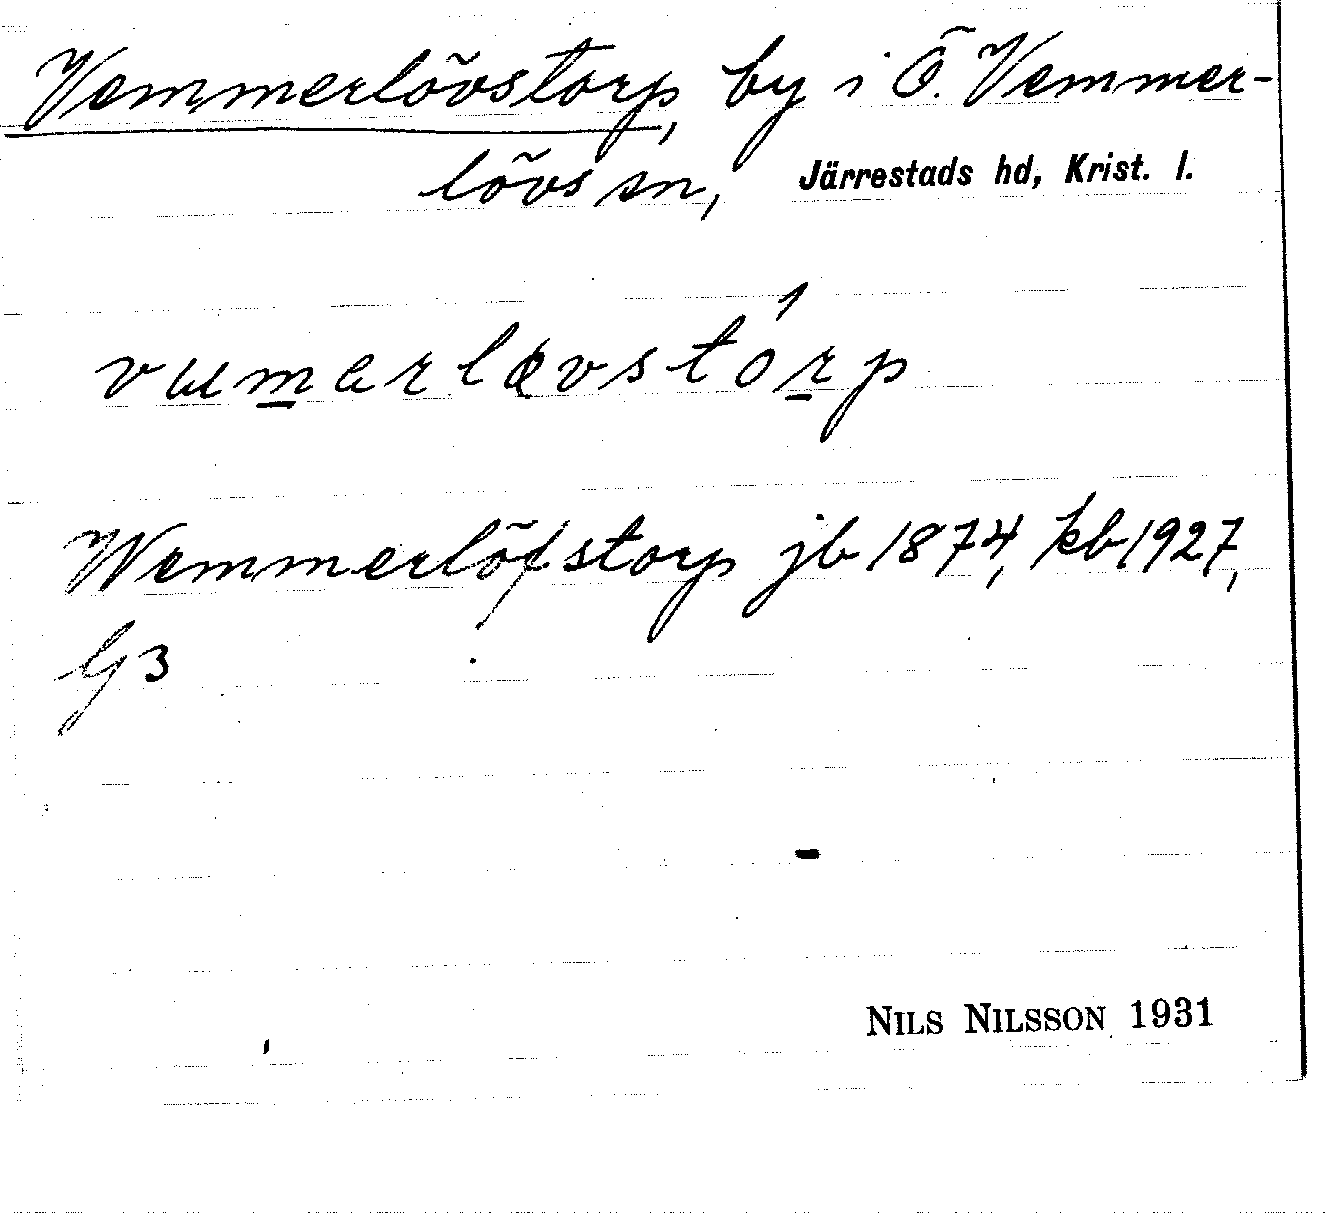 Vemmerlövstorp, by i Ö. Vemmer-
lövs sn, Järrestads hd, Krist. l.
Wemmerlöfstorp jb 1874, kb 1927,
G3
NILS NILSSON 1931